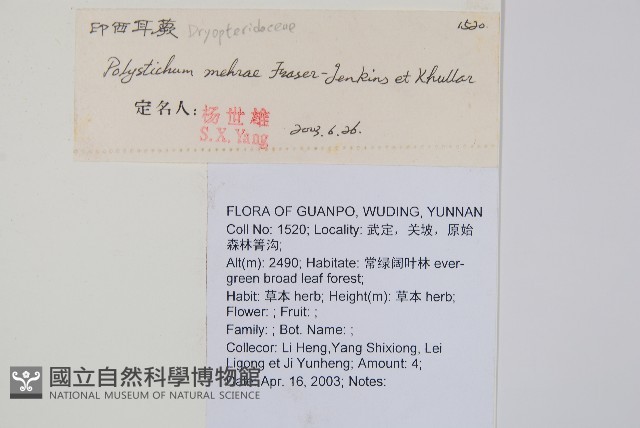 印西耳蕨 Dryopteridaceae 1520
Polystichum mehrae Fraser-Jenkins et Khullar
定名人: 杨世雄
S.X. Yang
2003.6.26.
FLORA OF GUANPO, WUDING, YUNNAN
Coll No: 1520; Locality: 武定，关坡，原始
森林箐沟;
Alt(m): 2490; Habitate: 常绿阔叶林 ever-
green broad leaf forest;
Habit: 草本 herb; Height(m): 草本 herb;
Flower: ; Fruit: ;
Family: ; Bot. Name: ;
Collecor: Li Heng,Yang Shixiong, Lei
Ligong et Ji Yunheng; Amount: 4;
Date: Apr. 16, 2003; Notes:
國立自然科學博物館
NATIONAL MUSEUM OF NATURAL SCIENCE